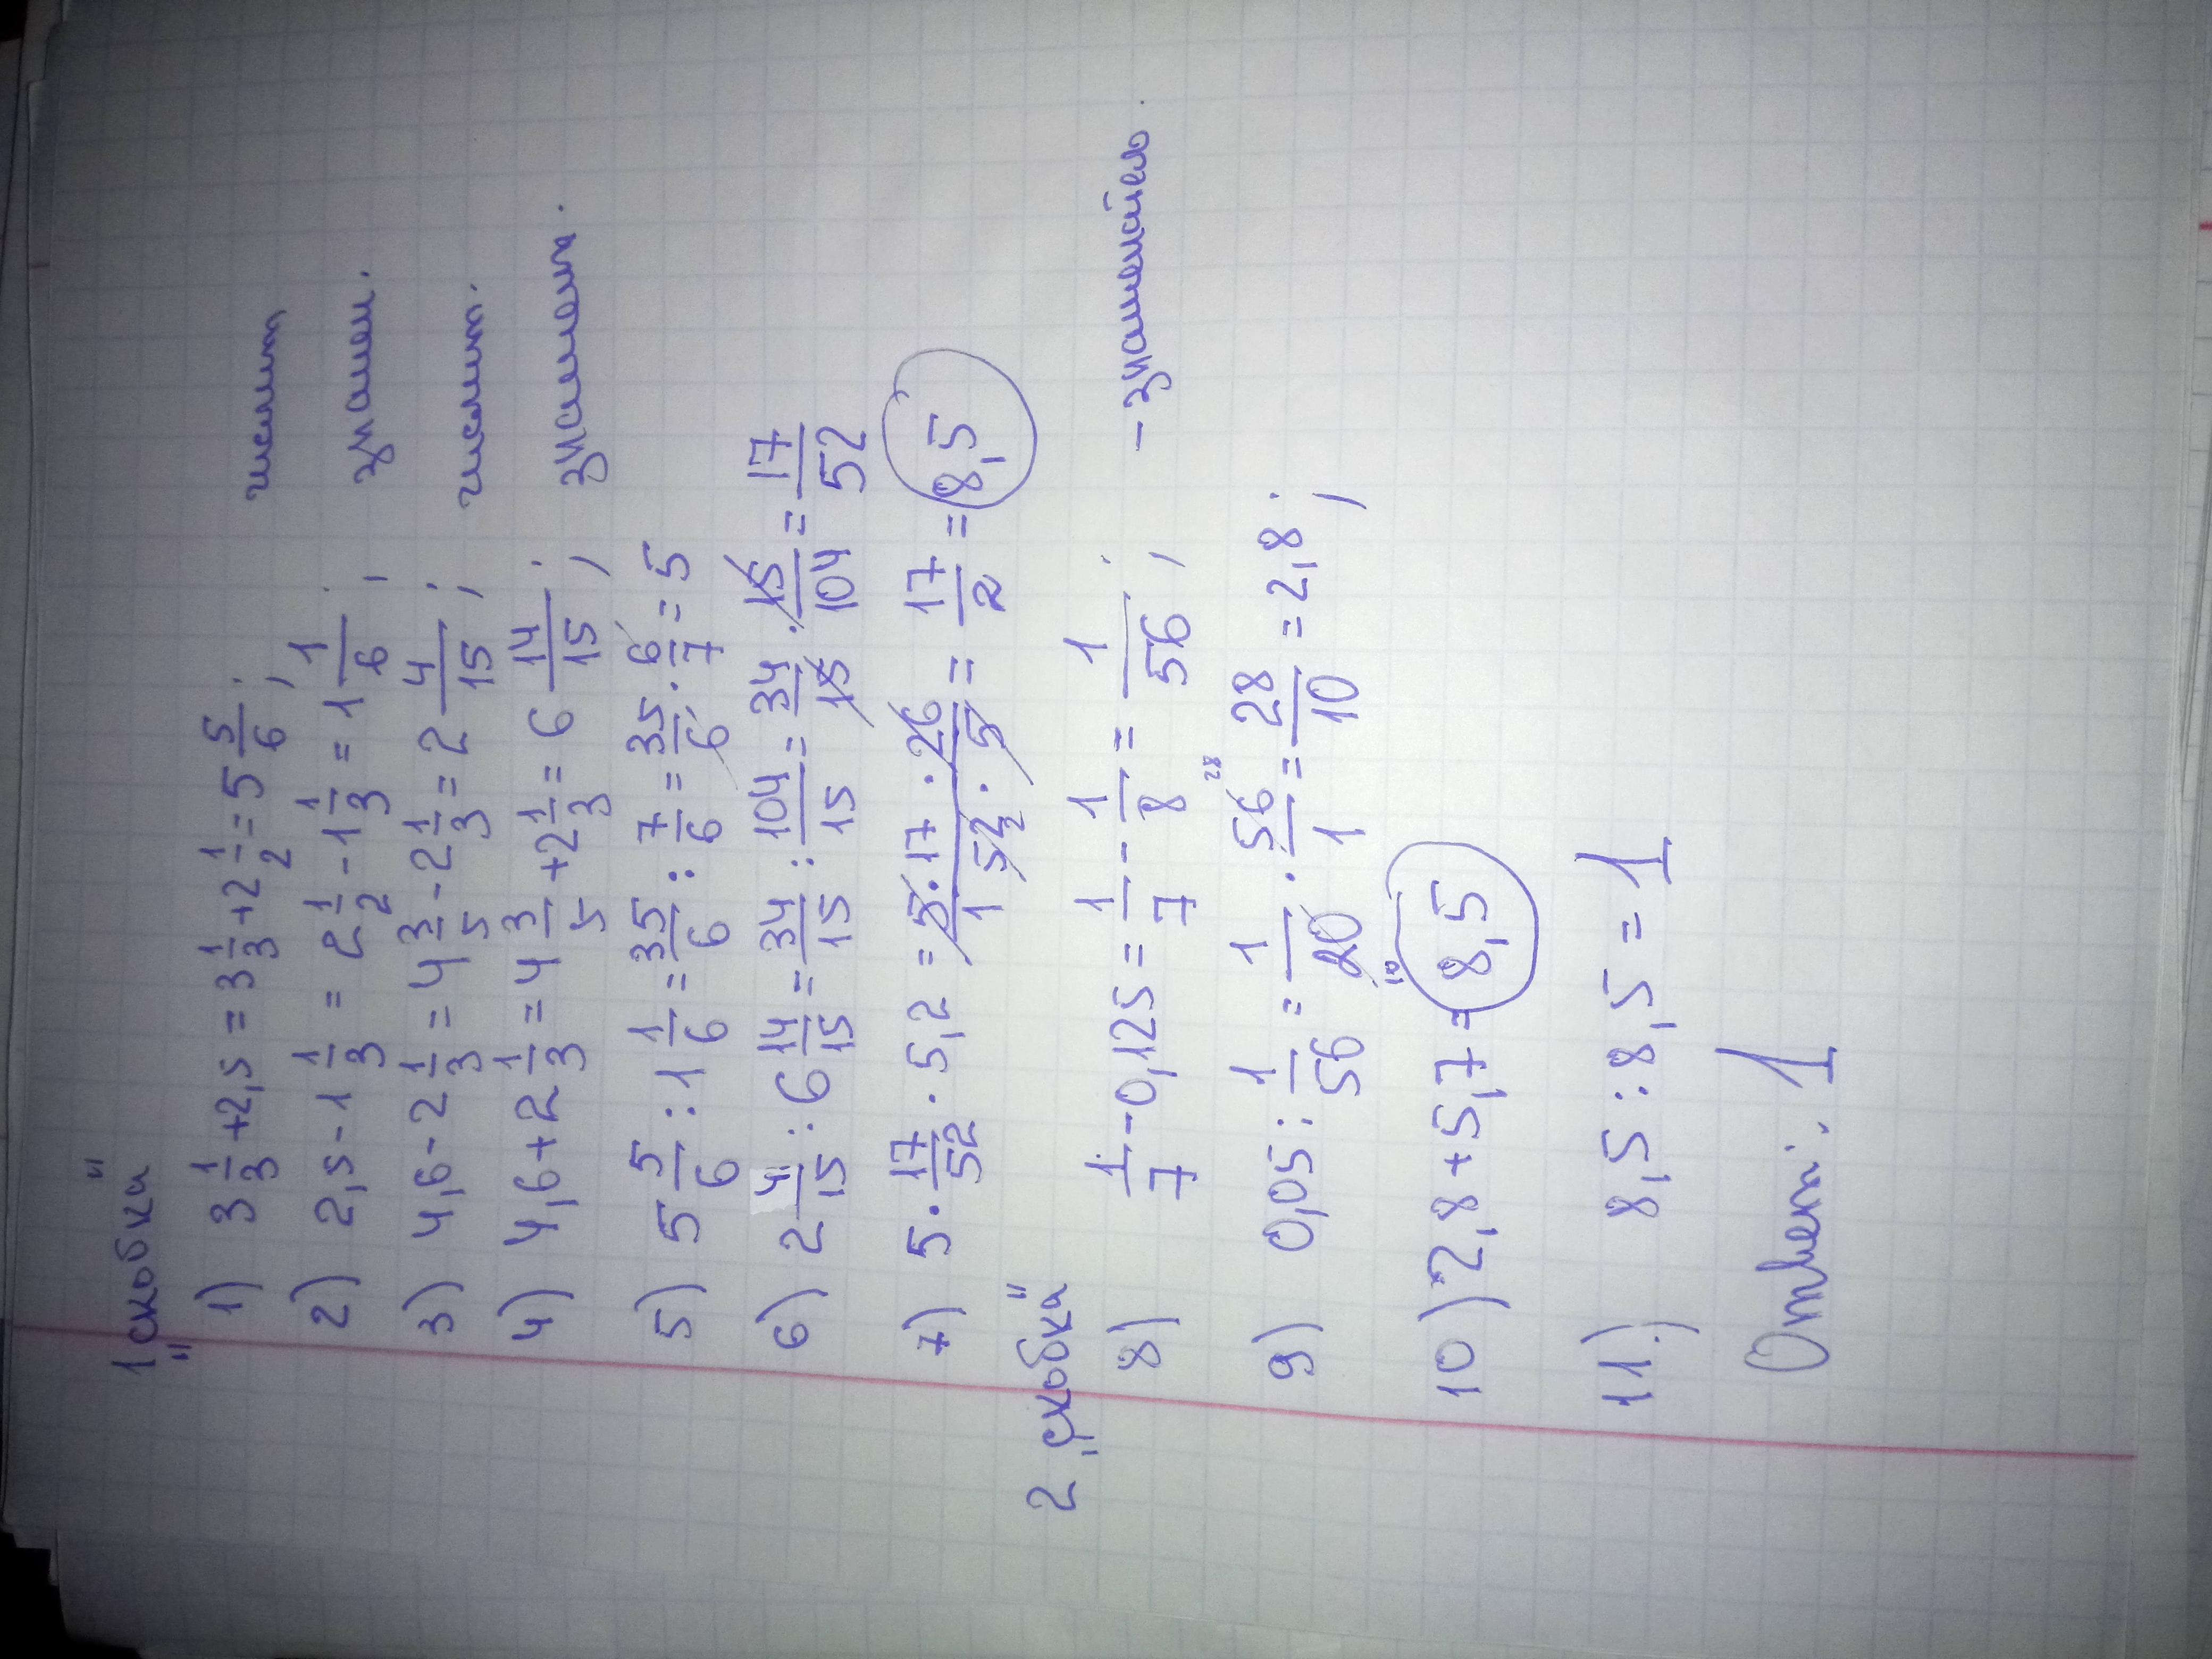 1 "скобка"
1) 3 1/3 + 2,5 = 3 1/3 + 2 1/2 = 5 5/6; числит
2) 2,5 - 1 1/3 = 2 1/2 - 1 1/3 = 1 1/6; знамен.
3) 4,6 - 2 1/3 = 4 3/5 - 2 1/3 = 2 4/15; числит.
4) 4,6 + 2 1/3 = 4 3/5 + 2 1/3 = 6 14/15; знаменат.
5) 5 5/6 : 1 1/6 = 35/6 : 7/6 = 35/6 · 6/7 = 5
6) 2 4/15 : 6 14/15 = 34/15 : 104/15 = 34/15 · 15/104 = 17/52
7) 5 · 17/52 · 5,2 = 5·17·26/1 52 2·5 = 17/2 = 8,5
2 "скобка"
8) 1/7 - 0,125 = 1/7 - 1/8 = 1/56; - знаменатель
9) 0,05 : 1/56 = 1/20 10 · 56 28/1 = 28/10 = 2,8;
10) 2,8 + 5,7 = 8,5
11) 8,5 : 8,5 = 1
Ответ: 1